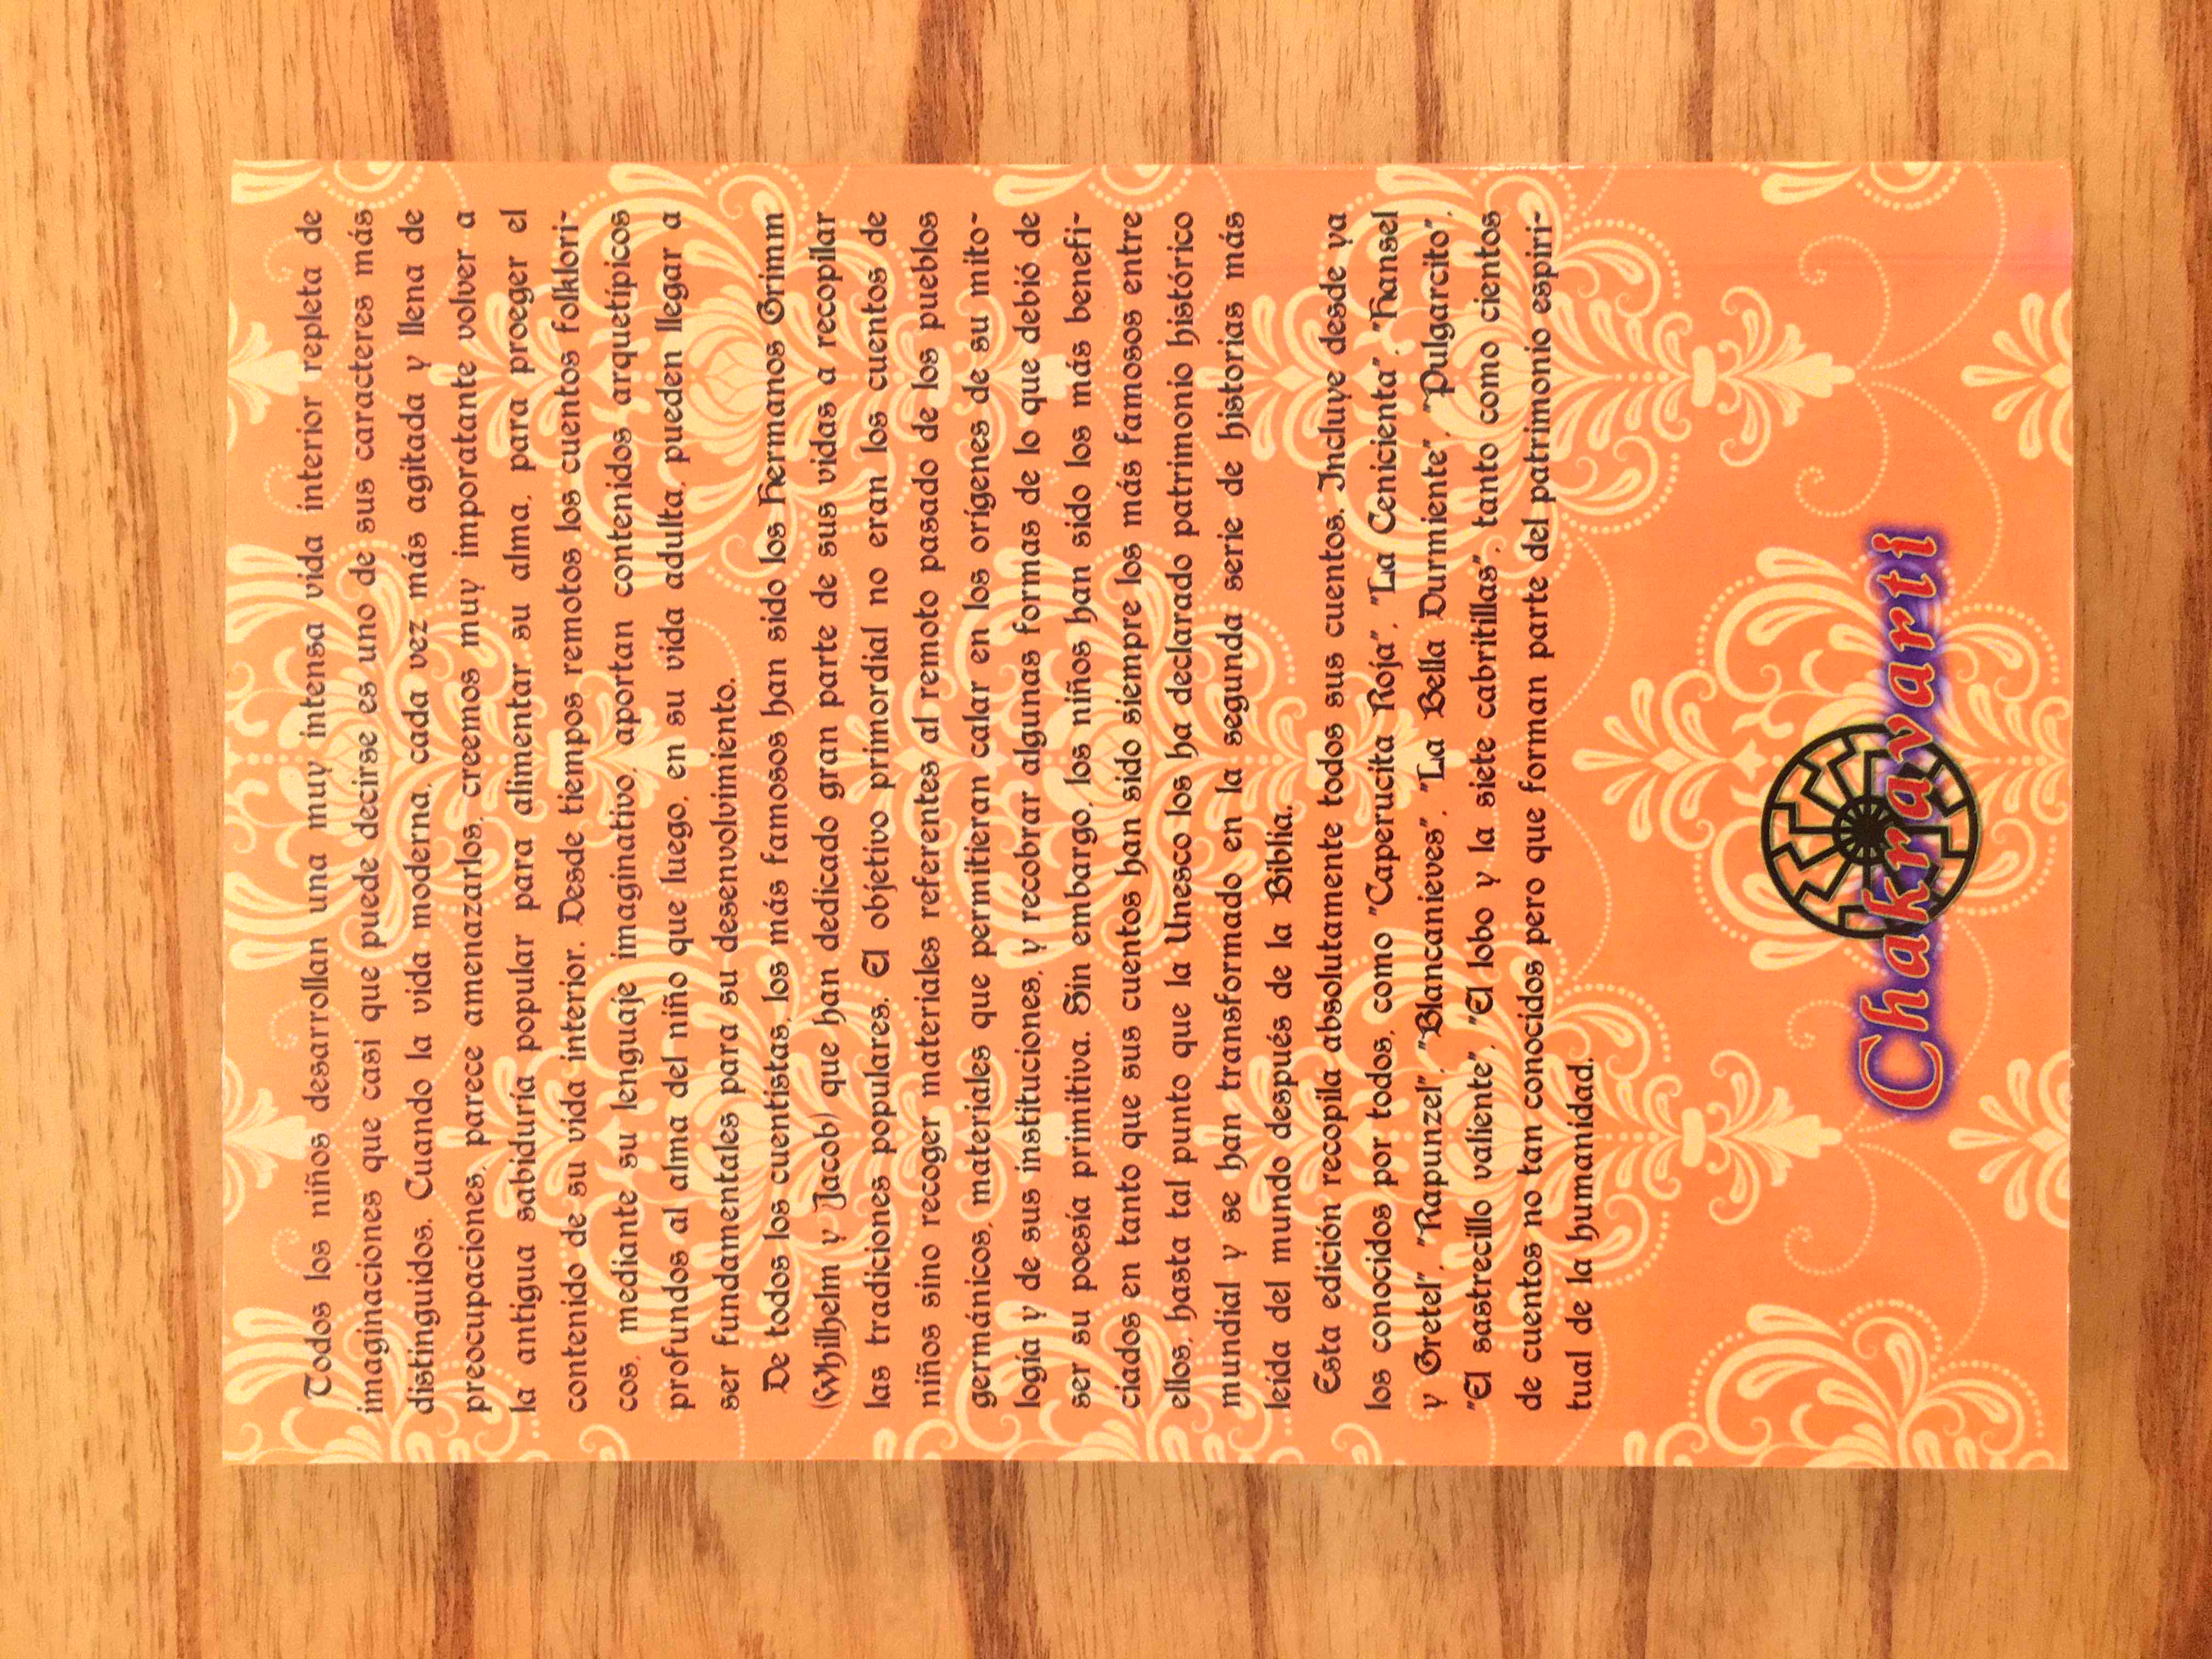 Todos los niños desarrollan una muy intensa vida interior repleta de
imaginaciones que casi que puede decirse es uno de sus caracteres más
distinguidos. Cuando la vida moderna, cada vez más agitada y llena de
preocupaciones, parece amenazarlos, creemos muy imporatante volver a
la antigua sabiduría popular para alimentar su alma, para proeger el
contenido de su vida interior. Desde tiempos remotos los cuentos folklori-
cos, mediante su lenguaje imaginativo, aportan contenidos arquetípicos
profundos al alma del niño que luego, en su vida adulta, pueden llegar a
ser fundamentales para su desenvolvimiento.
De todos los cuentistas, los más famosos han sido los Hermanos Grimm
(Whilhelm y Jacob) que han dedicado gran parte de sus vidas a recopilar
las tradiciones populares. El objetivo primordial no eran los cuentos de
niños sino recoger materiales referentes al remoto pasado de los pueblos
germánicos, materiales que permitieran calar en los orígenes de su mito-
logía y de sus instituciones, y recobrar algunas formas de lo que debió de
ser su poesía primitiva. Sin embargo, los niños han sido los más benefi-
ciados en tanto que sus cuentos han sido siempre los más famosos entre
ellos, hasta tal punto que la Unesco los ha declarado patrimonio histórico
mundial y se han transformado en la segunda serie de historias más
leída del mundo después de la Biblia.
Esta edición recopila absolutamente todos sus cuentos. Incluye desde ya
los conocidos por todos, como "Caperucita Roja", "La Cenicienta", "Hansel
y Gretel", "Rapunzel", "Blancanieves", "La Bella Durmiente", "Pulgarcito",
"El sastrecillo valiente", "El lobo y la siete cabritillas", tanto como cientos
de cuentos no tan conocidos pero que forman parte del patrimonio espiri-
tual de la humanidad.
Chakravarti